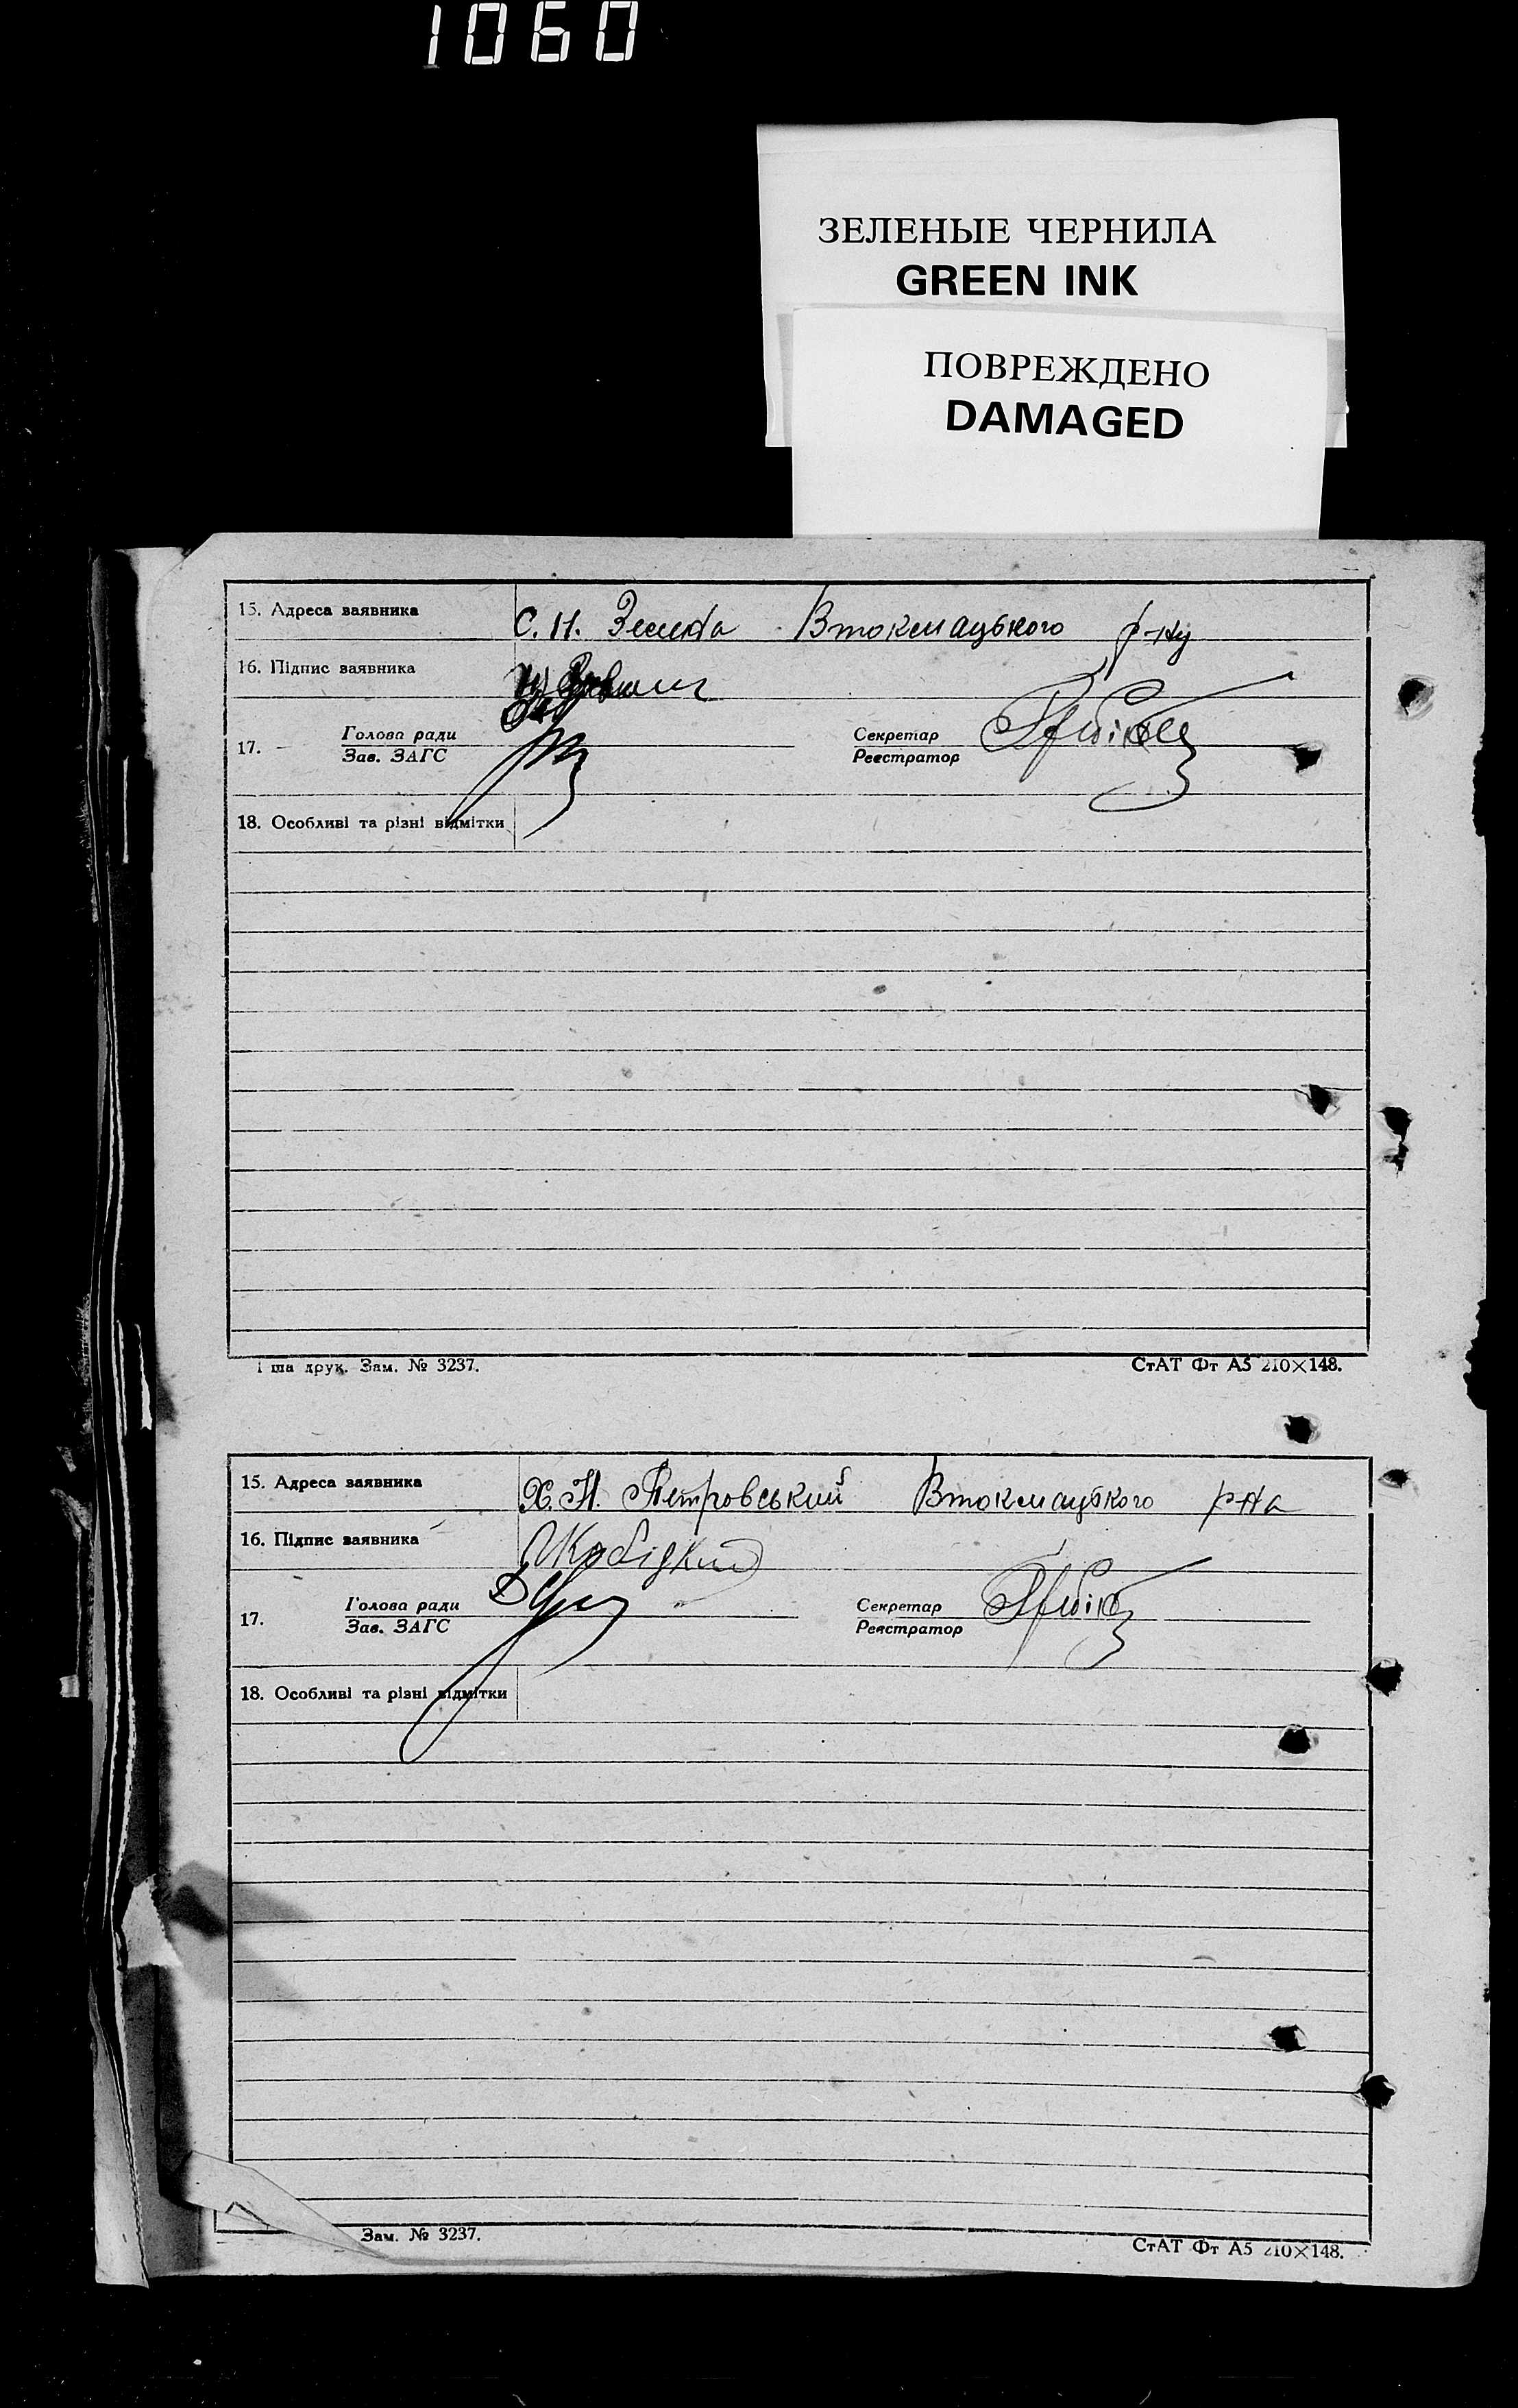 1060
ЗЕЛЕНЫЕ ЧЕРНИЛА
GREEN INK
ПОВРЕЖДЕНО
DAMAGED
15. Адреса заявника С. Н. Втокмацького р-ну
16. Підпис заявника
17. Голова ради Секретар
Зав. ЗАГС Реєстратор
18. Особливі та різні відмітки
ша друк. Зам. № 3237. СтАТ Фт А5 210×148.
15. Адреса заявника Х. Н. Петровський Втокмацького р-на
16. Підпис заявника
17. Голова ради Секретар
Зав. ЗАГС Реєстратор
18. Особливі та різні відмітки
Зам. № 3237. СтАТ Фт А5 210×148.